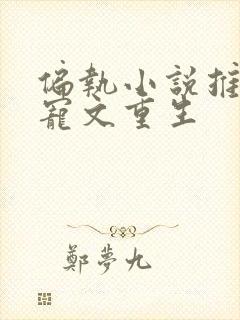 偏執小說推
寵文重生
鄭夢九